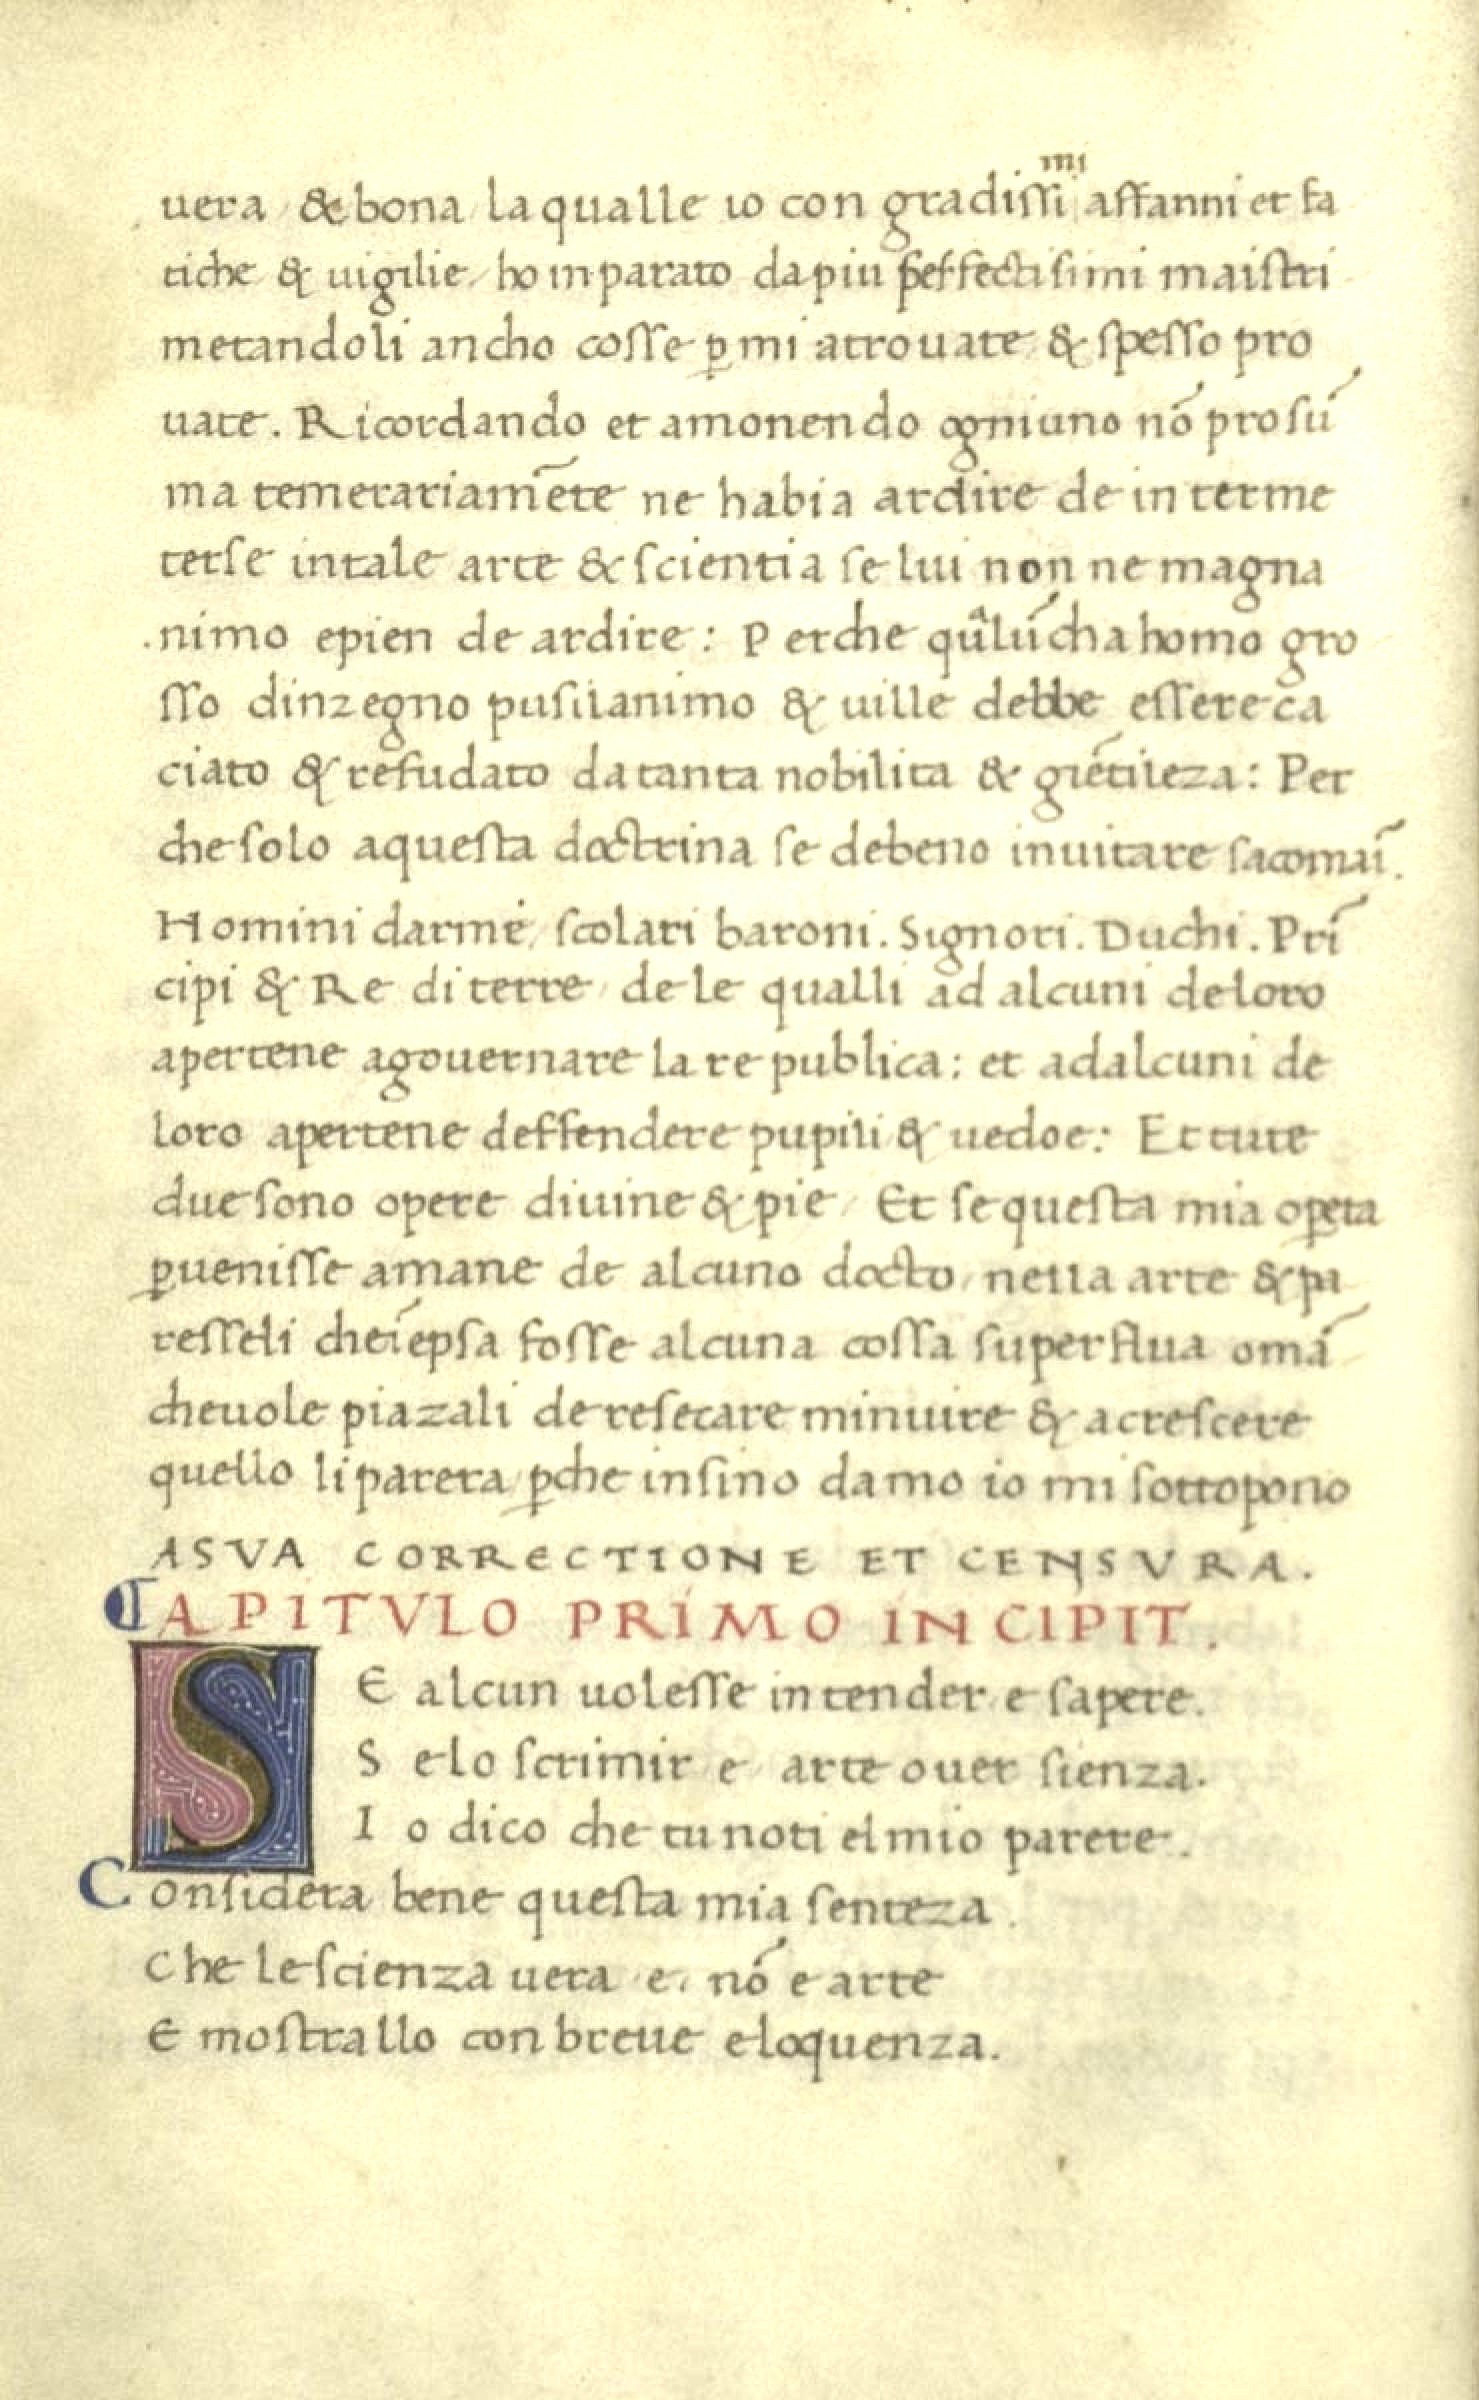 uera &bona laqualle io con gradissimi affanni et fa
tiche & uigilie ho inparato dapiu perfectisimi maistri
metandoli ancho cosse p̱mi atrouate & spesso pro
uate. Ricordando et amonendo ogniuno nō prosū
ma temerariamēte ne habia ardire de in terme
terse intale arte & scientia se lui non ne magna
nimo epien de ardire: Perche qûlūcha homo gro
sso dinzegno pusilanimo & uille debbe essere ca
ciato & refudato datanta nobilita & giētileza: Per
che solo aquesta doctrina se debeno inuitare sacomaī.
Homini darme, scolari baroni. Signori. Duchi. Prī
cipi & Re di terre, de le qualli ad alcuni deloro
apertene agouernare la re publica: et adalcuni de
loro apertene deffendere pupili & uedoe: Et tute
due sono opere diuine & pie, Et se questa mia op̱era
p̱uenisse amane de alcuno docto, nella arte & pa
resseli cheīepsa fosse alcuna cossa superflua omā
cheuole piazali de resecare minuire & acrescere
quello liparera p̱che insino damo io mi sottopono
ASVA CORRECTIONE ET CENSVRA.
CAPITVLO PRIMO INCIPIT.
SE alcun uolesse intender e sapere.
Se lo scrimir e arte ouer sienza.
Io dico che tu noti el mio parere.
Considera bene questa mia senteza.
Che le scienza uera e. nō e arte
E mostrallo con breue eloquenza.